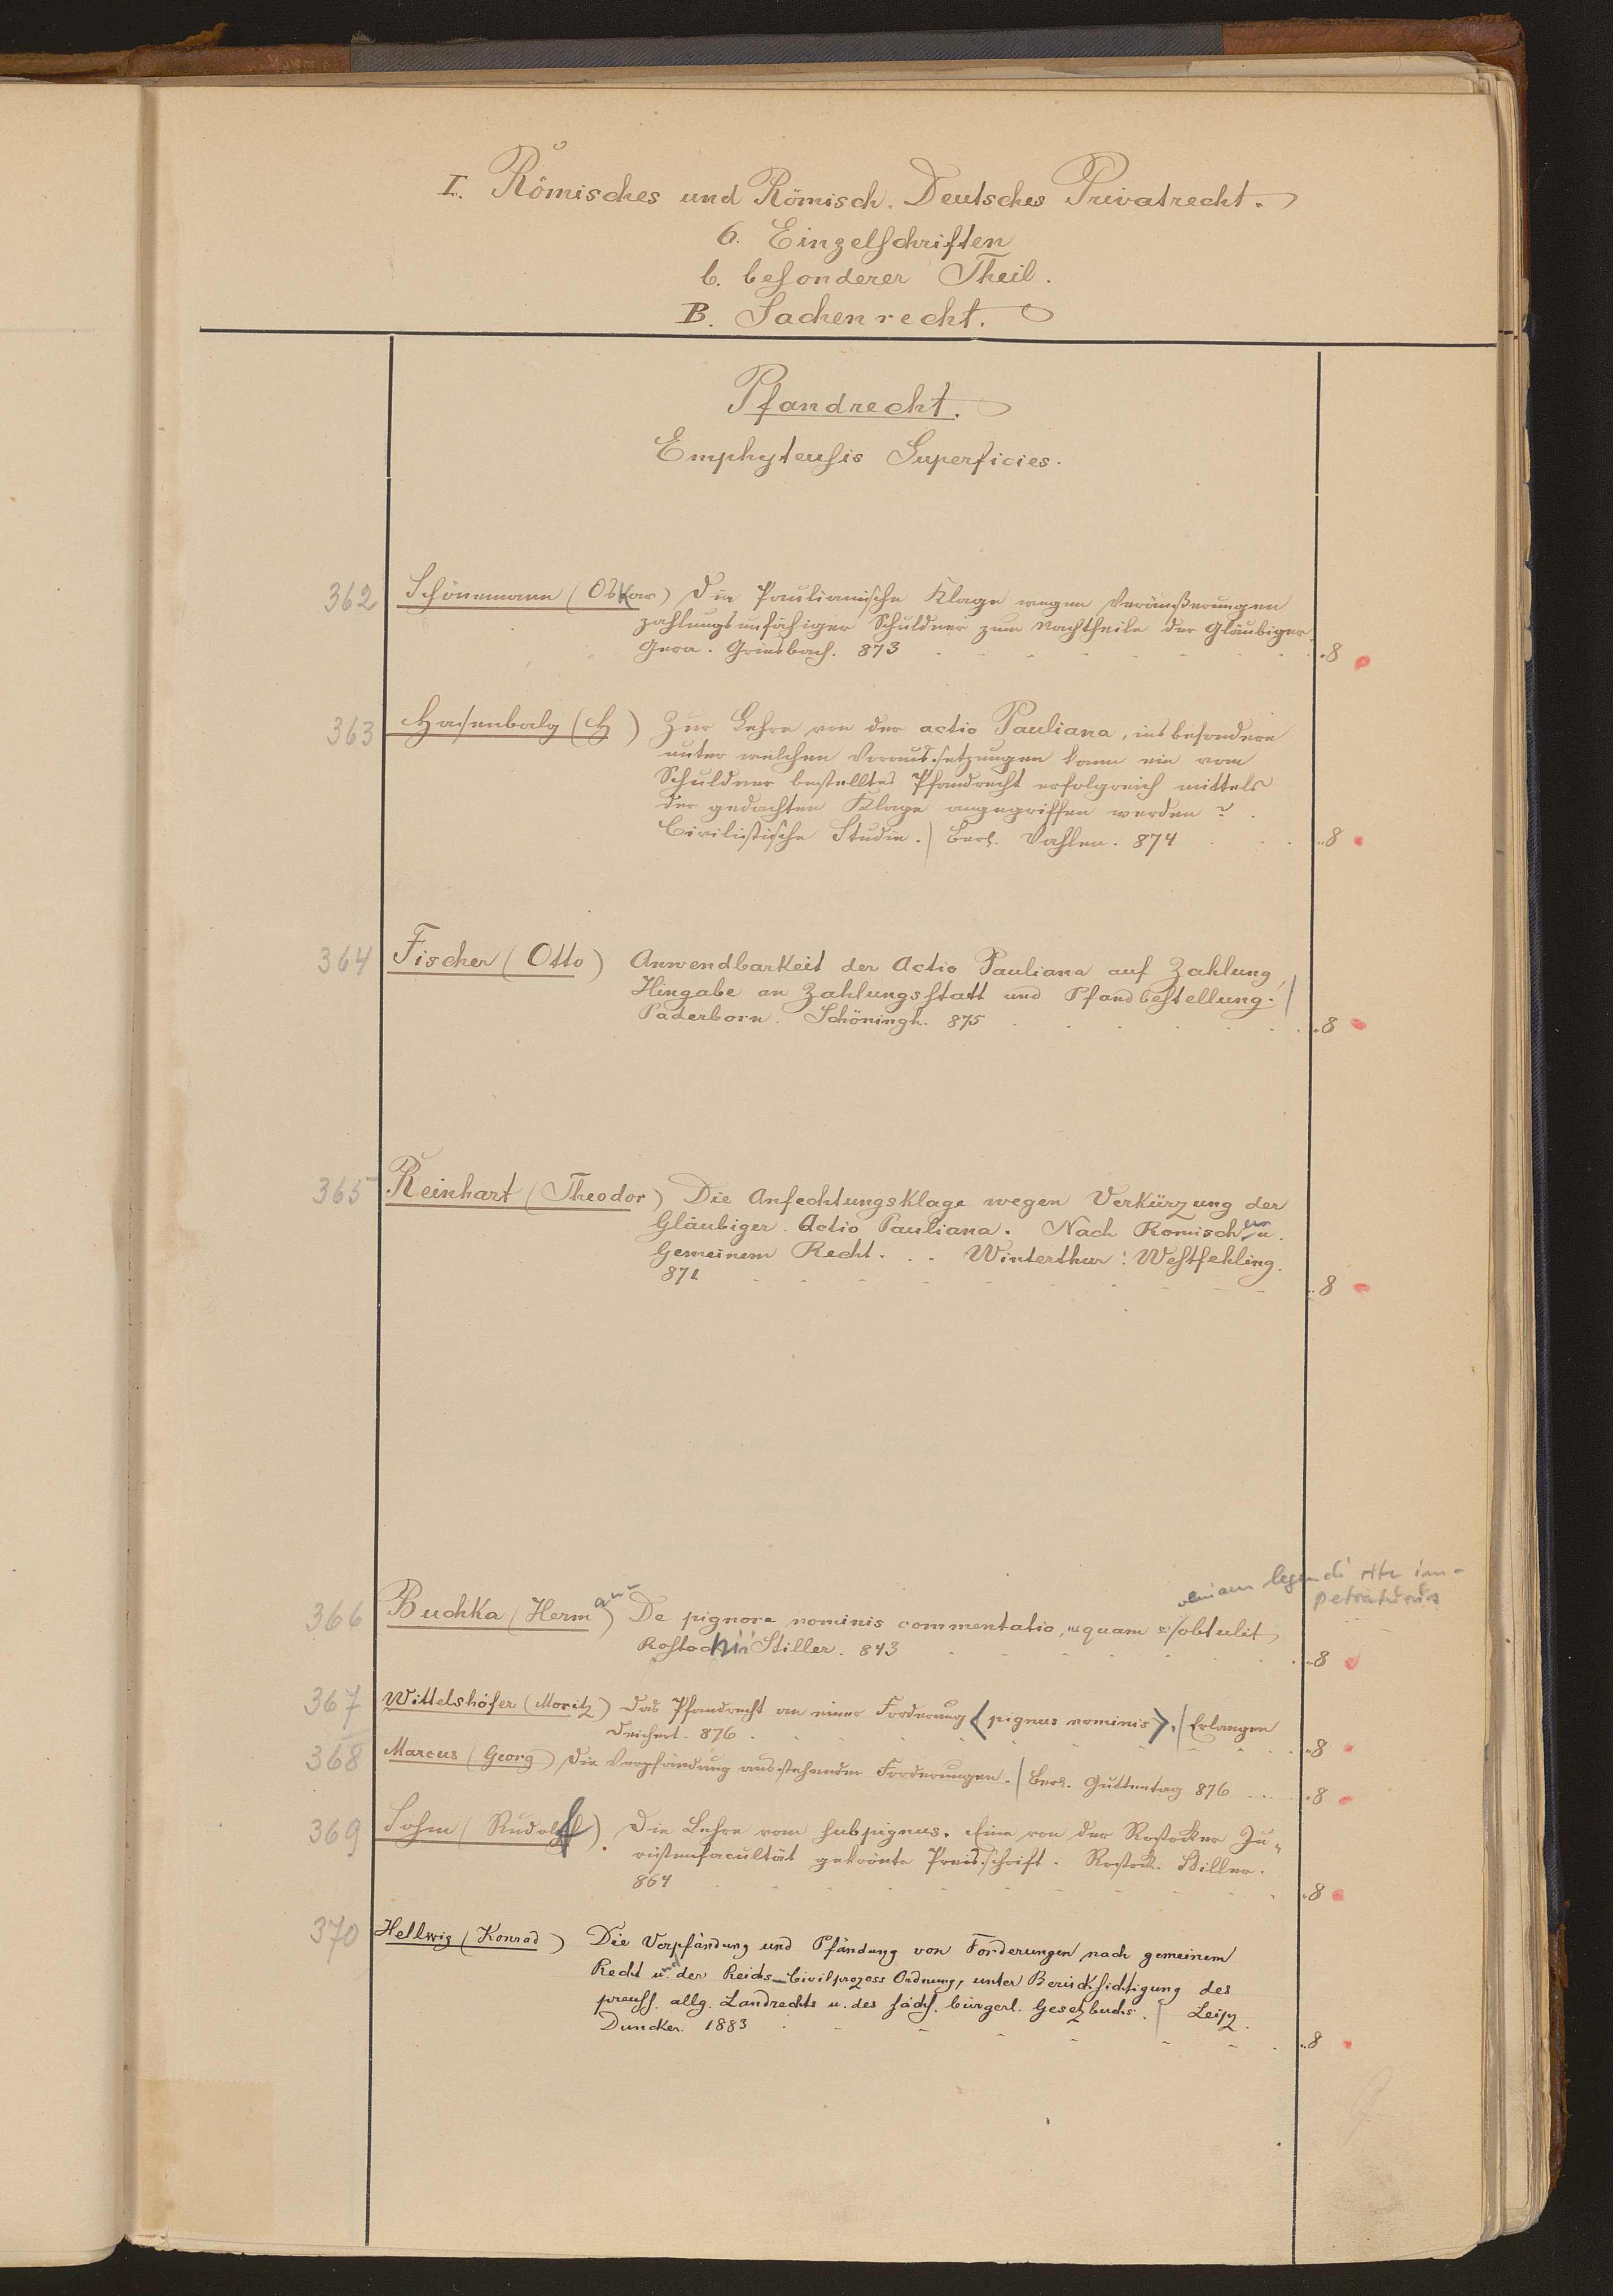 I. Römisches und Römisch. Deutsches Privatrecht.
6. Einzelschriften
b. besonderer Theil.
B. Sachenrecht.
Pfandrecht.
Emphyteusis Superficies.
362 Schönemann (Oskar) Die Paulianische Klage wegen Veräußerungen
zahlungsunfähiger Schuldner zum Nachtheile der Gläubiger.
Gera. Griesbach. 873 8
363 Hasenbalg (H) Zur Lehre von der actio Pauliana, insbesondere
unter welchen Voraussetzungen kann ein vom
Schuldner bestelltes Pfandrecht erfolgreich mittels
der gedachten Klage angegriffen werden?
Civilistische Studie. Berl. Vahlen. 874 8
364 Fischer (Otto) Anwendbarkeit der Actio Pauliana auf Zahlung,
Hingabe an Zahlungsstatt und Pfandbestellung.
Paderborn. Schöningh. 875 8
365 Reinhart (Theodor) Die Anfechtungsklage wegen Verkürzung der
Gläubiger. Actio Pauliana. Nach Römischem u.
Gemeinem Recht. . . Winterthur: Westfehling.
871 8
veniam legendi rite im-
petraturus
366 Buchka (Hermann) De pignore nominis commentatio, quam obtulit
Rostochii Stiller. 843 8
367 Wittelshöfer (Moritz) Das Pfandrecht an einer Forderung <pignus nominis>. Erlangen
Deichert. 876 8
368 Marcus (Georg) Die Verpfändung ausstehender Forderungen. Berl. Guttentag 876 8
369 Sohm (Rudolf). Die Lehre vom subpignus. Eine von der Rostocker Ju-
ristenfacultät gekrönte Preisschrift. Rostock. Stiller.
864 8
370 Hellwig (Konrad) Die Verpfändung und Pfändung von Forderungen nach gemeinem
Recht und der Reichs-Civilprozess Ordnung, unter Berücksichtigung des
preuss. allg. Landrechts u. des sächs. bürgerl. Gesetzbuchs. Leipz.
Duncker. 1883 8